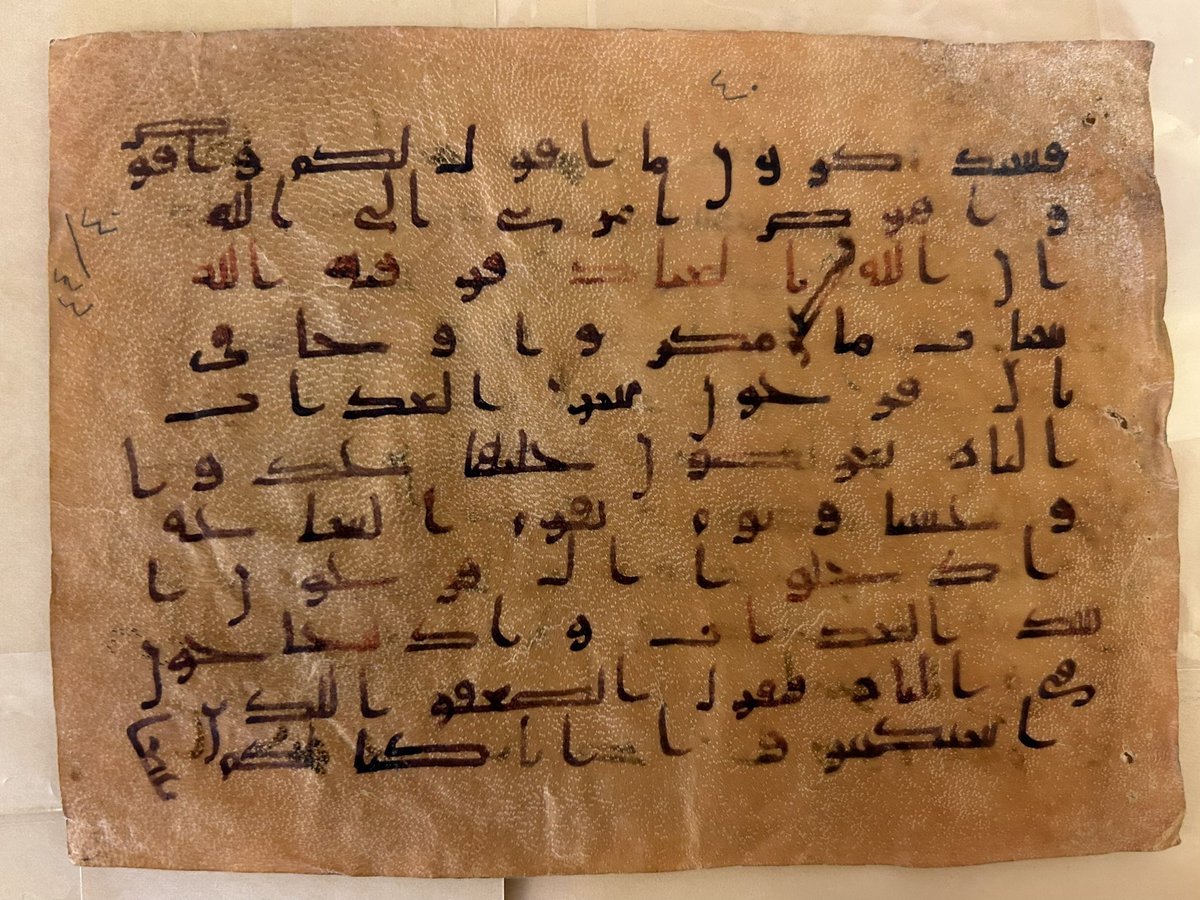 ٤٠
فستذكرون ما اقول لكم وافو
وافوض امري الى الله
٤٠/٤٤
ان الله بالعباد فوقيه الله
سيات ما مكروا وحاق
بال فرعون سو العذاب
النار يعرضون عليها غدوا
وعشيا ويوم تقوم الساعه
ادخلوا ال فرعون ا
شد العذاب واذ يتحاجون
في النار فيقول الضعفوا للذين
استكبروا انا كنا لكم